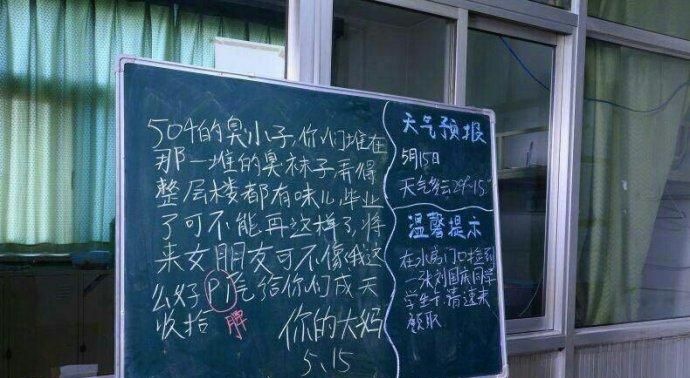 504的臭小子,你们堆在
那一堆的臭袜子弄得
整层楼都有味儿,毕业
了可不能再这样了,将
来女朋友可不像我这
么好PI气给你们成天
收拾 脾
你的大妈
5、15
天气预报
5月15日
天气多云29~15°
温馨提示
在水房门口捡到
一张刘国庆同学
学生卡,请速来
领取